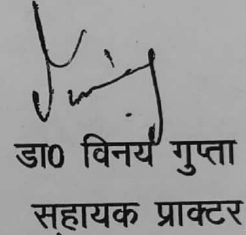 डा0 विनय गुप्ता
सहायक प्राक्टर